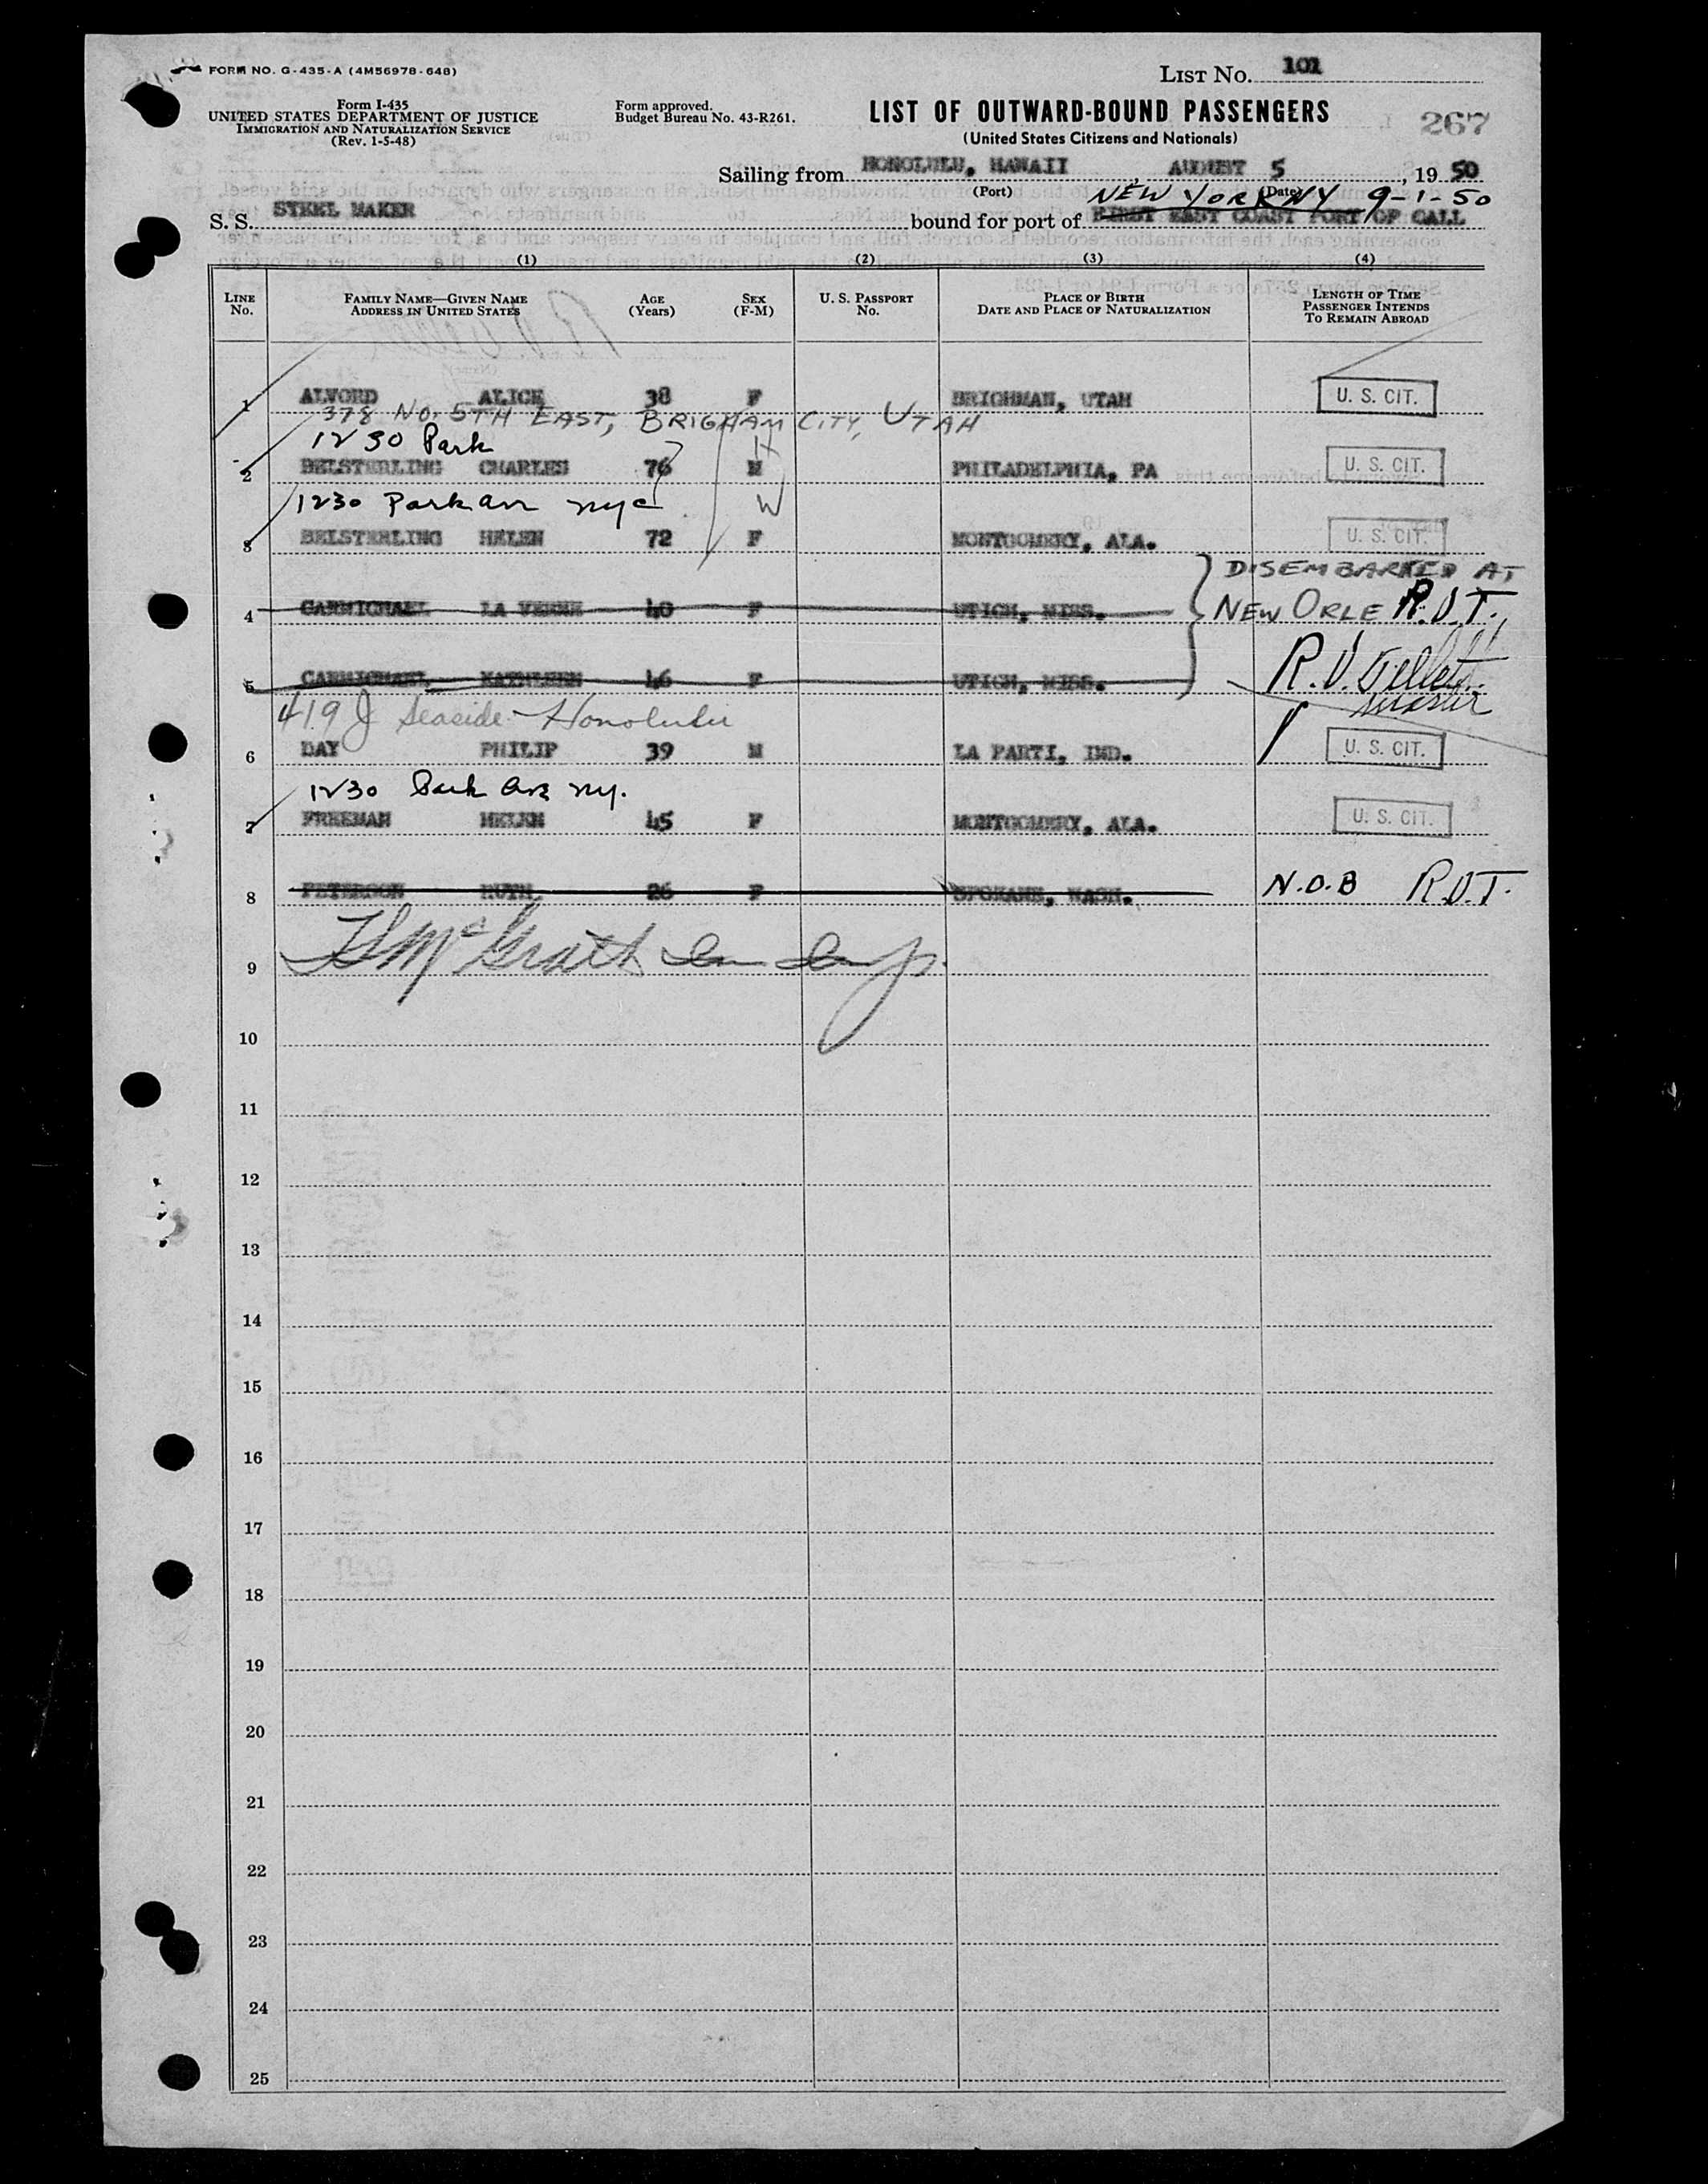 FORM NO. G-435-A (4M56978-648)
LIST NO. 101
Form I-435
UNITED STATES DEPARTMENT OF JUSTICE
IMMIGRATION AND NATURALIZATION SERVICE
(Rev. 1-5-48)
Form approved.
Budget Bureau No. 43-R261.
LIST OF OUTWARD-BOUND PASSENGERS
(United States Citizens and Nationals)
267
Sailing from HONOLULU, HAWAII, AUGUST 5, 1950
(Port) (Date)
NEW YORK NY 9-1-50
S. S. STEEL MAKER bound for port of FIRST EAST COAST PORT OF CALL
(1) (2) (3) (4)
LINE No.
FAMILY NAME—GIVEN NAME
ADDRESS IN UNITED STATES
AGE (Years)
SEX (F-M)
U. S. PASSPORT No.
PLACE OF BIRTH
DATE AND PLACE OF NATURALIZATION
LENGTH OF TIME
PASSENGER INTENDS
TO REMAIN ABROAD
1 ALVORD ALICE 38 F BRIGHMAN, UTAH U. S. CIT.
378 NO. 5TH EAST, BRIGHAM CITY, UTAH
1230 Park
2 BELSTERLING CHARLES 76 M PHILADELPHIA, PA U. S. CIT.
H
1230 Park Ave NYC W
3 BELSTERLING HELEN 72 F MONTGOMERY, ALA. U. S. CIT.
DISEMBARKED AT
4 CARMICHAEL LA VERNE 40 F UTICH, MISS. NEW ORLE R.V.T.
5 CARMICHAEL KATHLEEN 46 F UTICH, MISS. R.V.
master
419 J Seaside Honolulu
6 DAY PHILIP 39 M LA PARTI, IND. U. S. CIT.
1230 Park Ave NY.
7 FREEMAN HELEN 45 F MONTGOMERY, ALA. U. S. CIT.
8 PETERSON RUTH 26 F SPOKANE, WASH. N.O.B R.V.T.
McGrath
9
10
11
12
13
14
15
16
17
18
19
20
21
22
23
24
25